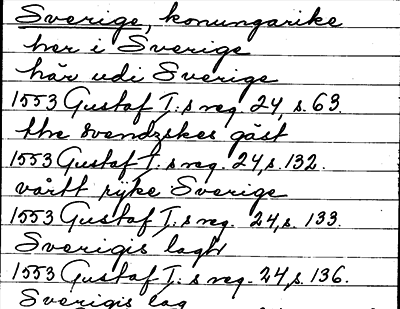 Sverige, konungarike
her i Sverige
här udi Sverige
1553 Gustaf I:s reg. 24, s. 63.
the svendzskes gäst
1553 Gustaf I:s reg. 24, s. 132.
vårtt rijke Sverige
1553 Gustaf I:s reg. 24, s. 133.
Sverigis lagh
1553 Gustaf I:s reg. 24, s. 136.
Sverigis lag